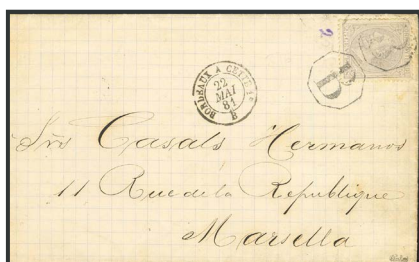 2
PD
BORDEAUX A CETTE 1º
22
MAI
81
B
Srs Casals Hermanos
11 Rue de la Republique
Marsella